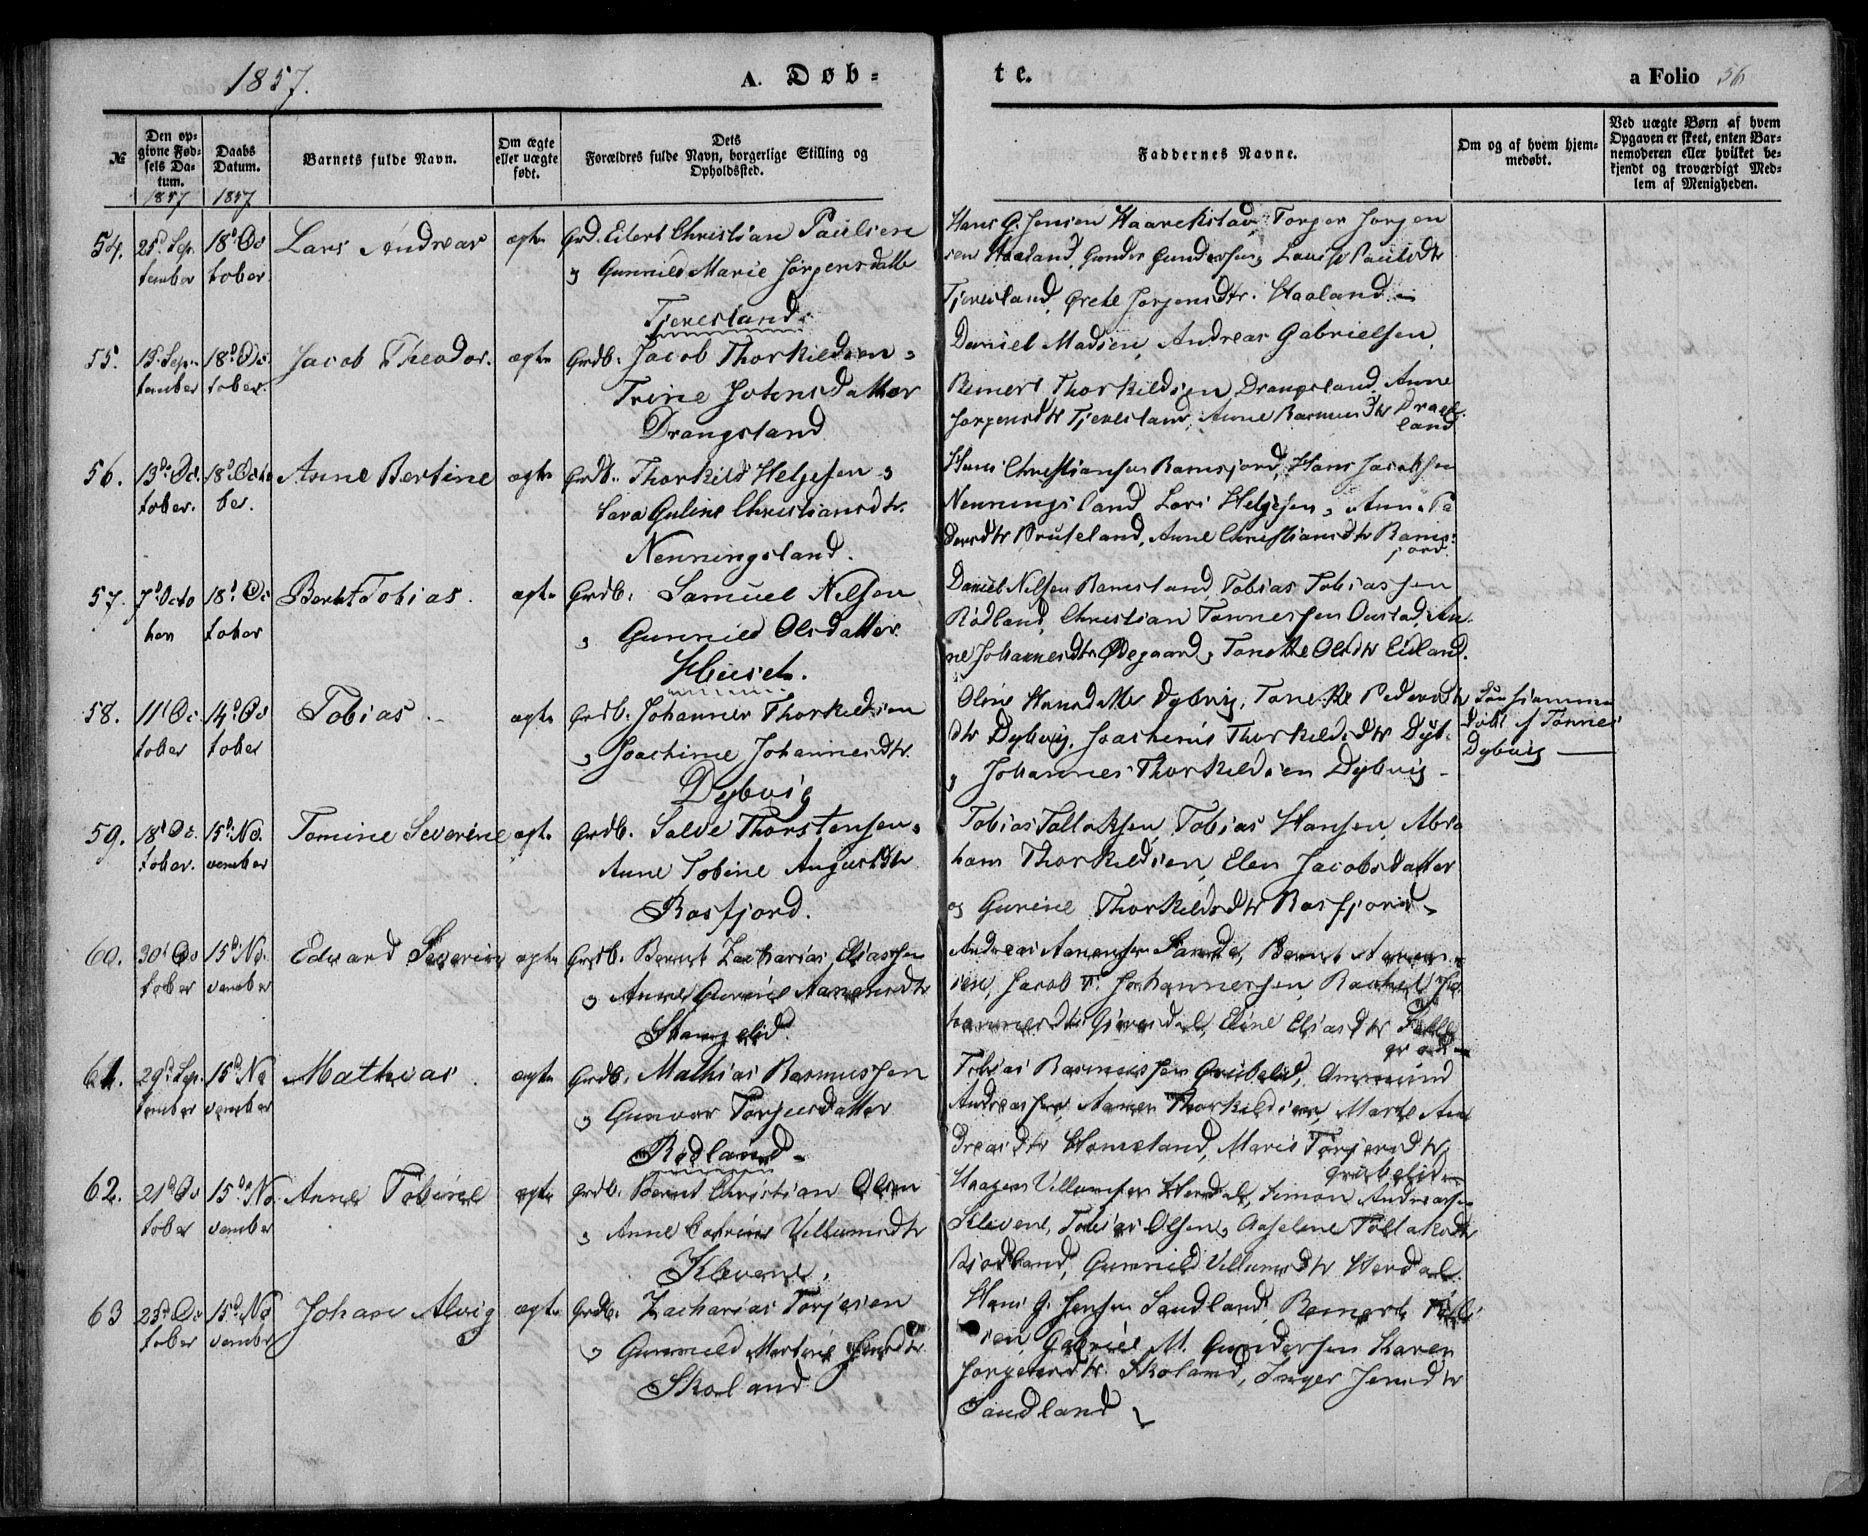 1857.
A. Døb-
te.
a Folio 56
№
Den op-
givne Fød-
sels Da-
tum.
1857
Daabs
Datum.
1857
Barnets fulde Navn.
Om ægte
eller uægte
født.
Dets
Forældres fulde Navn, borgerlige Stilling og
Opholdssted.
Faddernes Navne.
Om og af hvem hjem-
medøbt.
Ved uægte Børn af hvem
Opgaven er skeet, enten Bar-
nemoderen eller hvilket be-
kjendt og troværdigt Med-
lem af Menigheden.
54. 25d Sep 18d Oc Lars Andreas ægte Grd. Eilert Christian Paulsen
tember tober. og Gunnild Marie Jørgensdatter
Tjersland
Hans G. Jensen Haarckstad, Torger Jørgen
sen Haaland, Gunder Gundersen, Lovise Paulsdtr
Tjersland, Grete Jørgensdtr. Haaland
55. 13 Sep 18d Oc Jacob Theodor. ægte Grdb. Jacob Thorkildsen og
tember tober. Trine Johnsdatter
Drangsland
Daniel Madsen, Andreas Gabrielsen,
Reinert Thorkildsen Drangsland, Anne
Jørgensdtr Tjersland, Anne Rasmusdtr Drangs
land
56. 13d Oc 18d Octo Anne Bertine ægte Grdb. Thorkild Helgesen og
tober. ber. Sara Guline Christiansdtr.
Nenningsland.
Hans Christiansen Ramsfjord, Hans Jacobsen
Nenningsland, Lars Helgesen, Anne Pe
dersdtr Bruseland, Anne Christiansdtr Rams
fjord.
57. 7d Octo 18d Oc Bernt Tobias. ægte Grdb. Samuel Nilsen
ber tober og Gunnild Olsdatter
Huset.
Daniel Nilsen Ramsland, Tobias Tobiassen
Rødland, Christian Tønnessen Onstad, An
ne Johannesdtr Ødegaard, Tonette Olsdtr Eidland.
58. 11d Oc 14d Oc Tobias ægte Grdb. Johannes Thorkildsen
tober tober og Joachime Johannesdtr.
Dybvig
Oline Hansdatter Dybvig, Tonette Peders
dtr Dybvig, Joachime Thorkildsdtr Dyb.
og Johannes Thorkildsen Dybvig
hjemme
døbt af Tønnes
Dybvig
59. 18d Oc. 15d No. Tomine Severine ægte Grdb. Salve Thorstensen og
tober. vember Anne Tobine Augustdtr
Rosfjord.
Tobias Tollaksen, Tobias Hansen, Abra
ham Thorkildsen, Elen Jacobsdatter
og Gurine Thorkildsdtr Rosfjord
60. 30d Oc 15d No. Edvard Severin ægte Grdb. Bernt Zacharias Eliassen
tober vember og Anne Gurine Aanensdtr
Stangelid.
Andreas Aanensen Sande, Bernt Aanen
sen, Jacob T. Johannessen, Rachel Jo
hannesdtr Girisdal, Eline Eliasdtr
61. 29d Sep 15d No Mathias ægte Grdb. Mathias Rasmussen
tember vember og Gunvor Torjusdatter
Rødland
Tobias Rasmussen Grubelid, Anmund
Andreassen, Aanen Thorkildsen, Marte An
dreasdtr Homeland, Maris Torjesdtr
Grubelid
62. 21d Oc 15d No Anne Tobine ægte Grdb. Bernt Christian Olsen
tober vember og Anne Catrine Villumsdtr
Klevene.
Haagen Villumsen Herdal, Simon Andreassen
Klevene, Tobias Olsen, Aaselene Tollaksdtr
Rødland, Gunnild Villumsdtr Herdal.
63 23d Oc 15d No Johan Alvig ægte Grdb. Zacharias Torjesen
tober vember og Gunnild Martine Jensdtr
Skoland
Hans G. Jensen Sandland, Reinert
sen, Gabriel M. Gundersen, Karen
Jørgensdtr. Skoland, Inger Jensdtr
Sandland